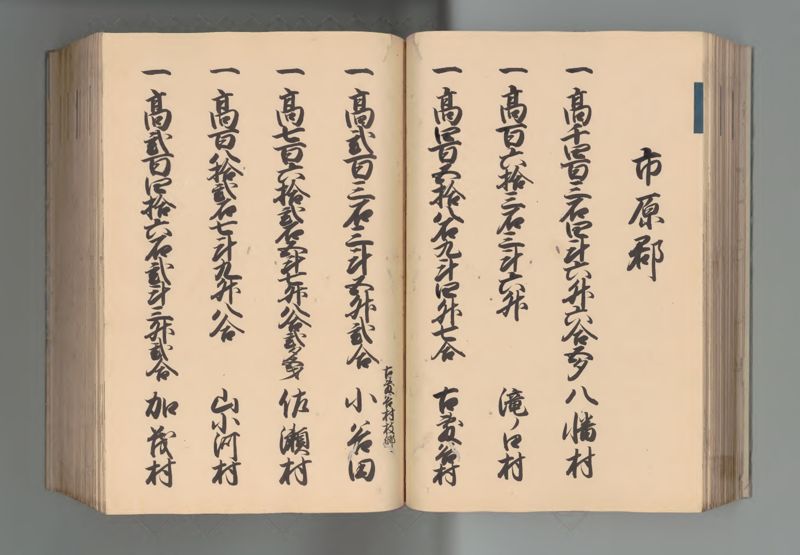 市原郡
一 高千四百三石四斗六升六合 八幡村
一 高百六拾三石三斗六升 滝ノ口村
一 高四百五拾八石九斗四升七合 古敷谷村
古敷谷村枝郷
一 高弐百三石三斗五升弐合 小谷田
一 高七百六拾弐石六斗七升八合弐夕 佐瀬村
一 高百八拾弐石七斗九升八合 山小河村
一 高弐百四拾六石弐斗三升弐合 加茂村